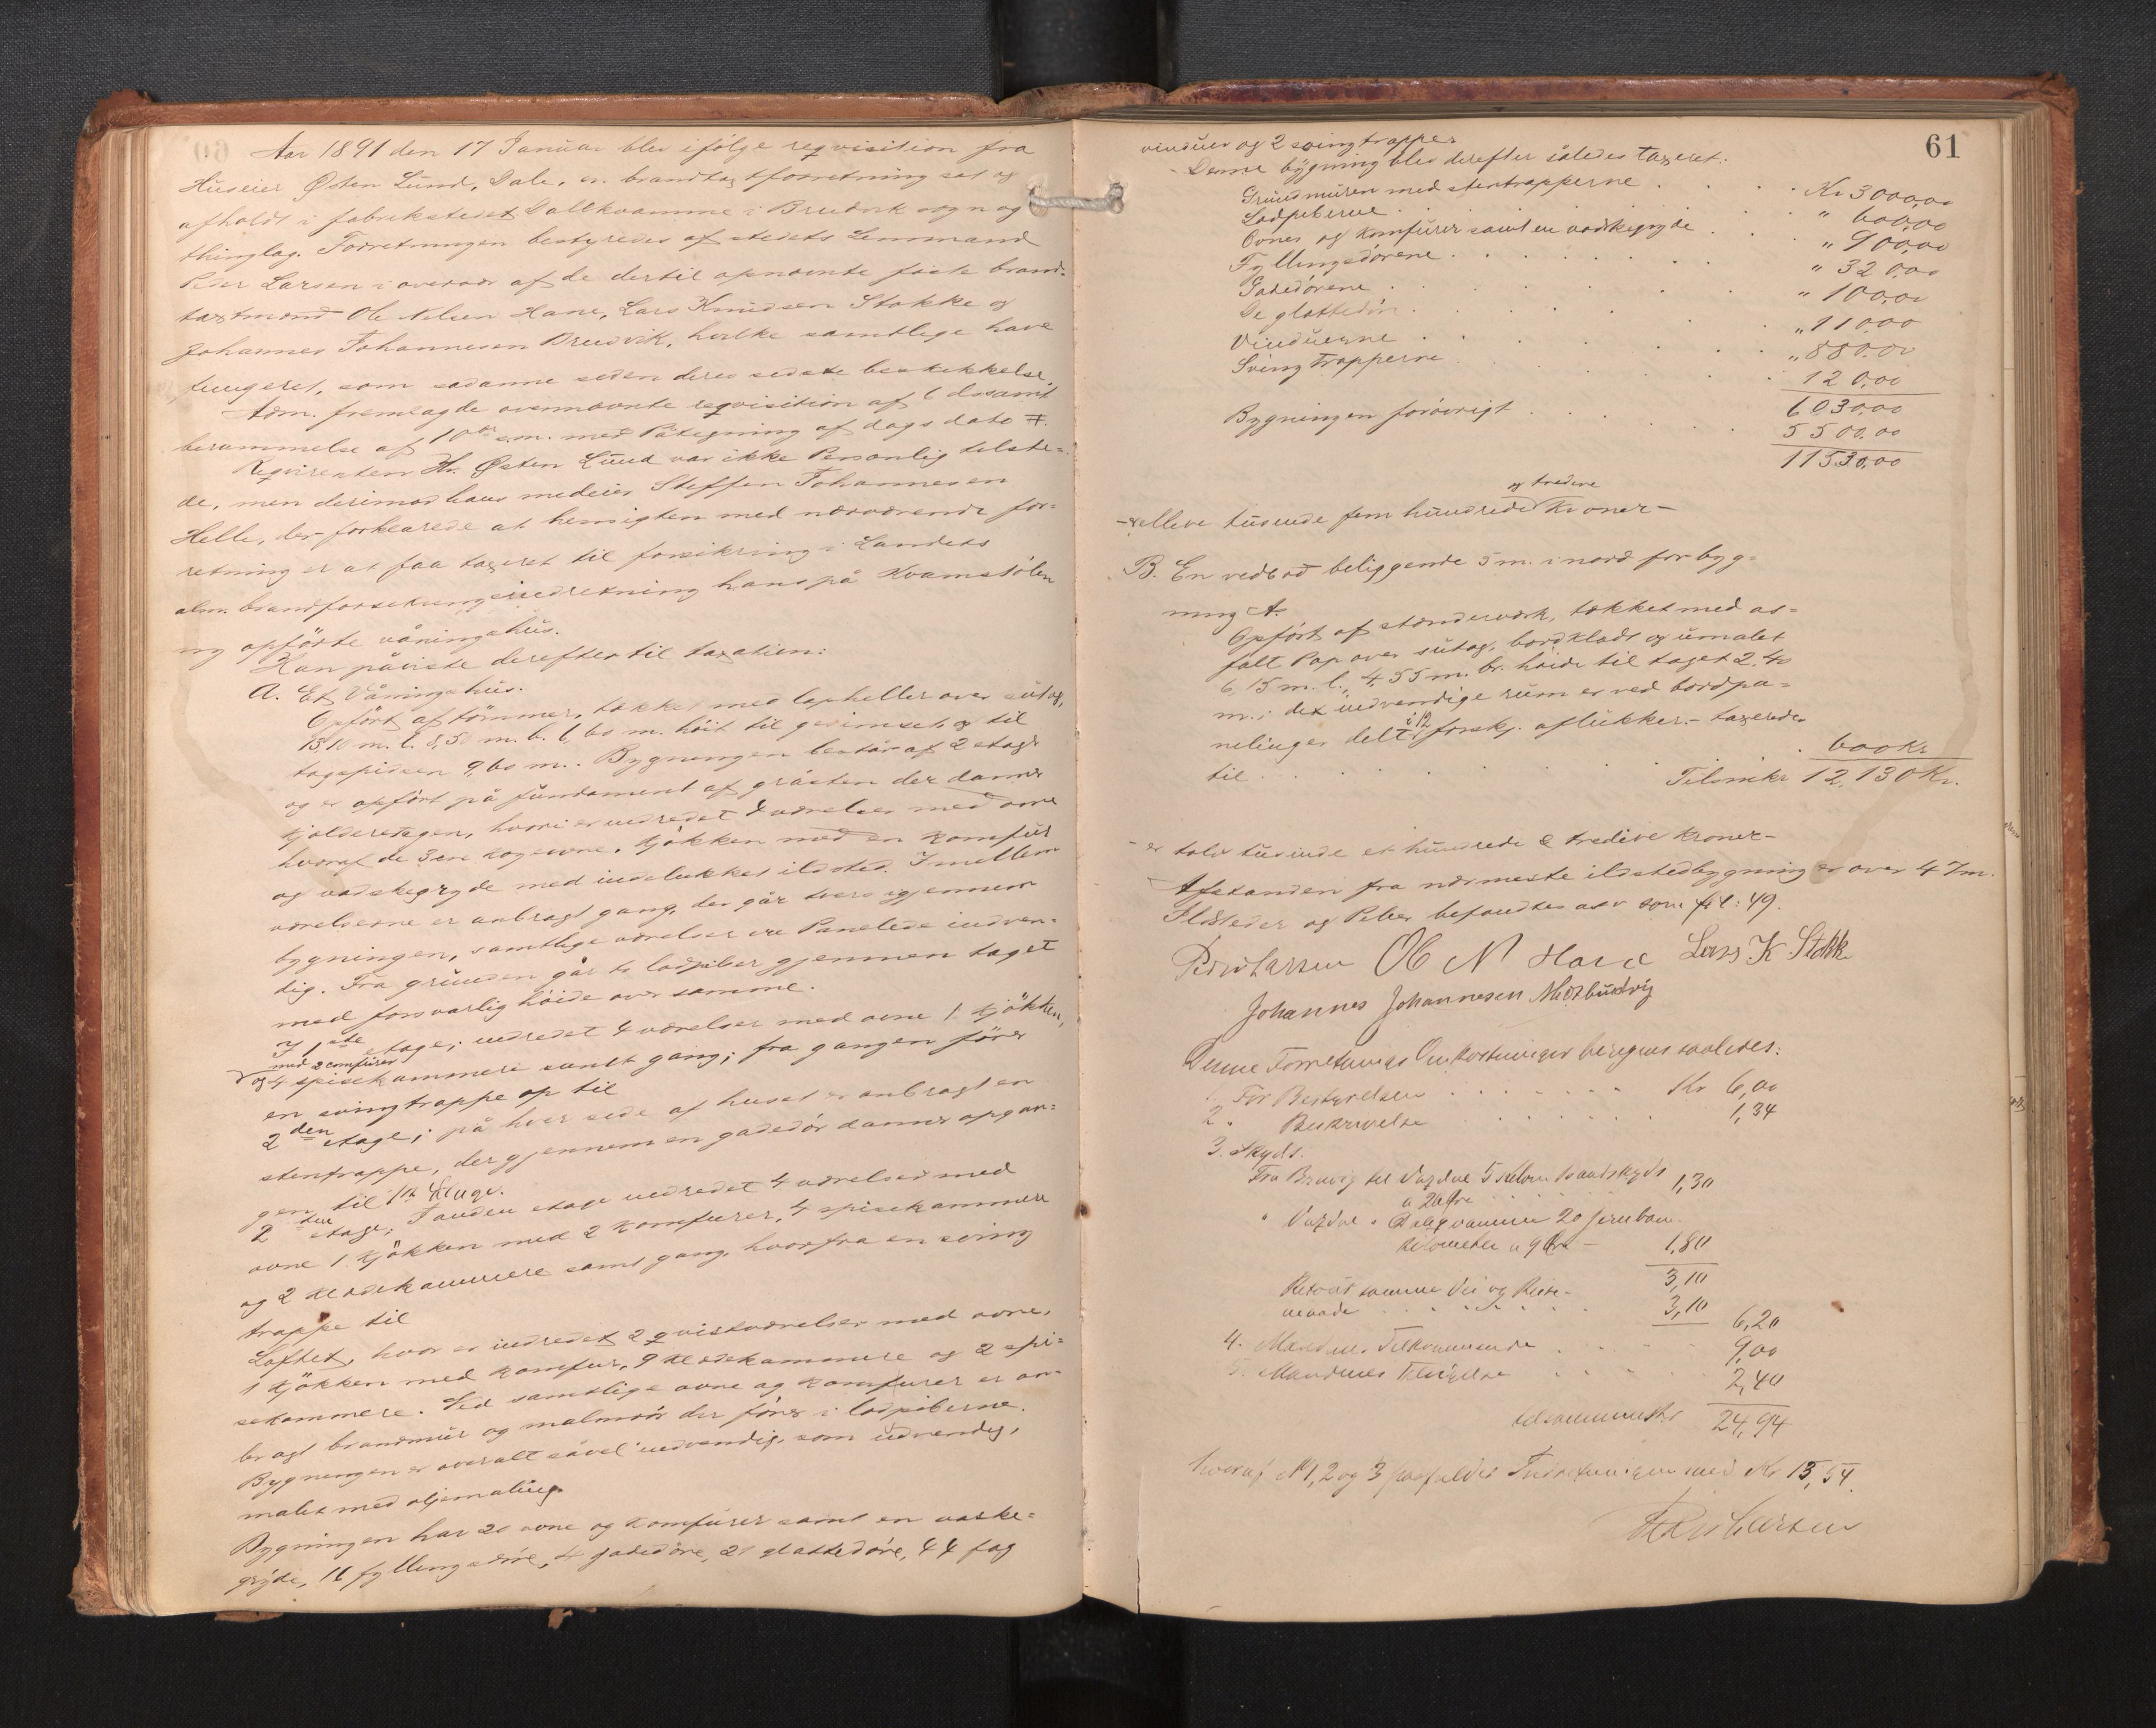 Aar 1891 den 17 Januar blev ifølge reqvisition fra
Huseier Østen Lund, Dale, en brandtaxtforretning sat og
afholdt i fabrikstedet Dallkvamme i Bruvik sogn og
thinglag. Forretningen bestyredes af stedets Lensmand
Peder Larsen i overvær af de dertil opnævnte faste brand-
taxtmænd Ole Nilsen Hane, Lars Knudsen Stokke og
Johannes Johannesen Bruvik, hvilke samtlige have
fungeret, som sådanne siden deres sidste beskikkelse.
Adm. fremlagde ovennævnte reqvisition af 6 ds samt
berammelse af 10de s.m. med Påtegning af dags dato #.
Reqvirenten Hr. Østen Lund var ikke Personlig tilste-
de, men derimod hans medeier Steffen Johannesen
Helle, der forklarede at hensigten med nærværende for-
retning er at faa taxeret til forsikring i Landets
alm. brandforsikringsindretning hans på Kvamstølen
ny opførte våningshus.
Han påviste derefter til taxation:
A. Et Våningshus.
Opført af tømmer, tækket med lapheller over sutag,
13,10 m. l. 8,50 m. b. 6,60 m. höit til gesimset og til
tagspidsen 9,60 m.. Bygningen består af 2 etager
og er opført på fundament af gråsten der danner
kjelderetagen, hvori er indredet 4 værelser med ovne
hvoraf de 3 ere kogeovne, kjökken med en komfur
og vaskegryde med indelukket ildsted. Imellem
værelserne er anbragt gang, der går tvers igjennem
bygningen, samtlige værelser ere Panelede indven-
dig. Fra grunden går to ladpiber gjennem taget
med forsvarlig höide over samme.
I 1ste etage; indredet 4 værelser med ovne 1 kjökken,
med 2 comfurer
og 4 spisekammere samt gang; fra gangen fører
en svingtrappe op til
2den etage; på hver side af huset er anbragt en
stentrappe, der gjennem en gadedør danner opgan-
gen til 1ste Etage.
2den etage; I anden etage indredet 4 værelser med
ovne 1 kjökken med 2 komfurer, 4 spisekammere
og 2 klædekammere samt gang, hvorfra en sving
trappe til
Loftet, hvor er indredet 2 qvistværelser med ovne,
1 kjökken med komfur, 9 klædekammere og 2 spi-
sekammere. Ved samtlige ovne og komfurer er an-
bragt brandmur og malmrör der fører i ladpiberne.
Bygningen er overalt såvel indvendig, som udvendig,
malet med oljemaling.
Bygningen har 20 ovne og komfurer samt en vaske-
gryde, 16 fyllingsdøre, 4 gadedøre, 21 glattedøre, 44 fag
61
vinduer og 2 svingtrapper
Denne bygning blev derefter således taxeret:
Grundmuren med stentrapperne . . . Kr 3000,00
Ladpiberne . . . " 600,00
Ovner og komfurer samt en vaskegryde . . . " 900,00
Fyllingsdørene . . . " 320,00
Gadedørene . . . " 100,00
De glattedør . . . " 110,00
Vinduerne . . . " 880,00
Svingtrapperne . . . 120,00
6030,00
Bygningen forøvrigt . . . 5500,00
11530,00
og tredive
- elleve tusinde fem hundrede Kroner -
B. En vedbod beliggende 5 m. i nord for byg-
ning A.
Opført af stænderværk, tækket med as-
falt Pap over sutag, bordklædt og umalet
6,15 m. l., 4,55 m. br. höide til taget 2,40
m.; det indvendige rum er ved bordpa-
nelinger delt i 12 forskj. aflukker. - taxeredes
til . . . 600 Kr
Tilsmkr 12,130 Kr.
- er tolv tusinde et hundrede & tredive kroner -
Afstanden fra nærmeste ildstedbygning er over 47 m.
Ildsteder og Piber befandtes osv som fol: 49.
Peder Larsen Ole N Hane Lars K. Stokke
Johannes Johannesen Midtbruvig
Denne Forretnings Omkostninger beregnes saaledes:
1. For Bestyrelsen . . . Kr 6,00
2. " Beskrivelse . . . 1,34
3. Skyds.
Fra Bruvig til Vaxdal 5 Kilom Vandskyds
a 26 Øre . . . 1,30
" Vaxdal " Dalegvammen 20 jernban.
kilometer a 9 Øre - 1,80
3,10
Retour samme Vei og Reise-
maade . . . 3,10 6,20
4. Mændenes Tilkommende . . . 9,00
5. Mændenes Tilsigelse . . . 2,40
tilsammen Kr 24,94
hvoraf No 1, 2 og 3 forfaldes Indretningen med Kr 13,54.
Peder Larsen